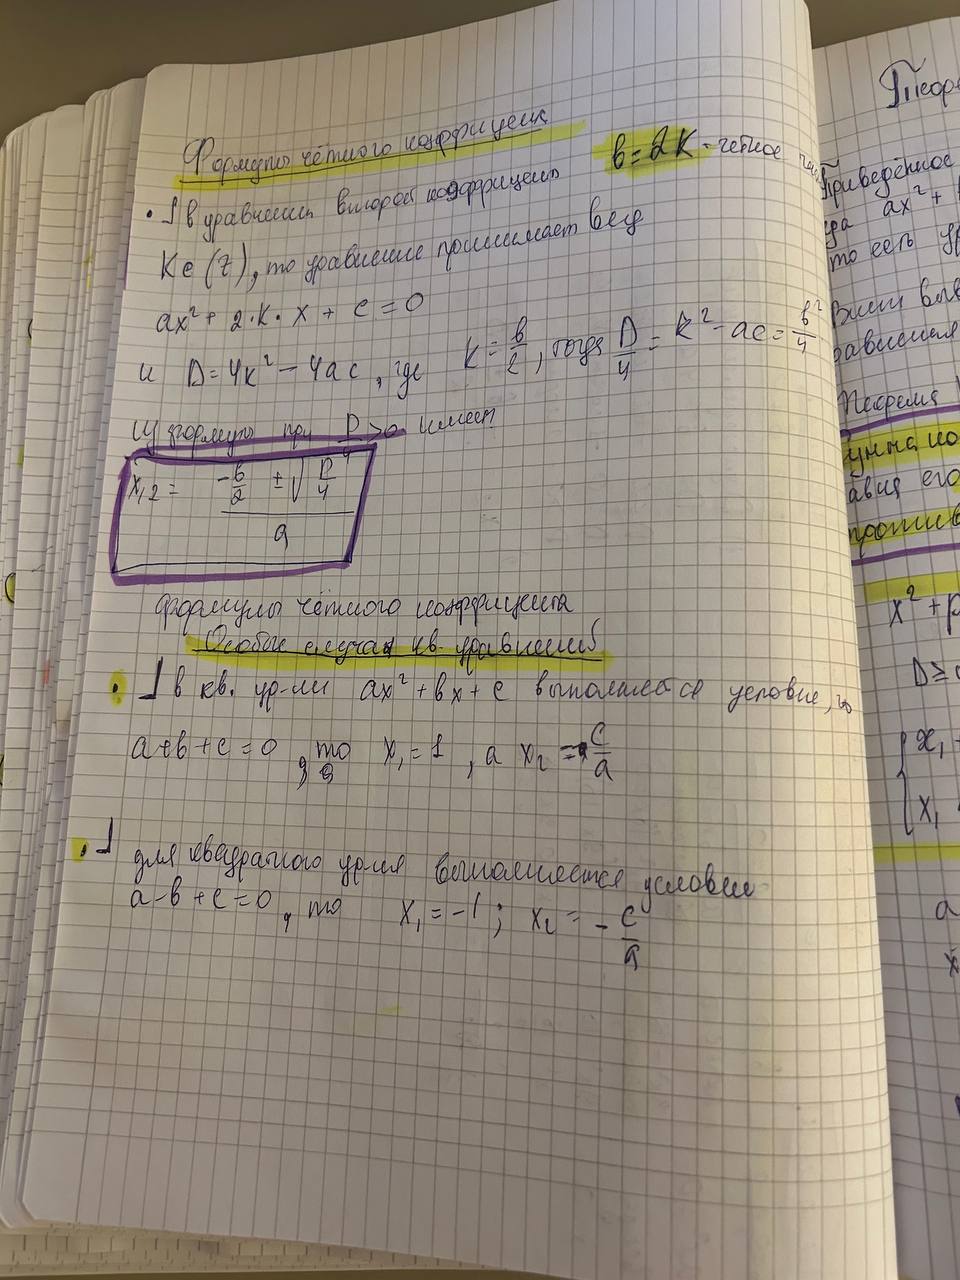 Формулы чётного коэффициен
b = 2K - чётное
• ⅃ в уравнении второй коэффициент
K ∈ (Z), то уравнение принимает вид
ax² + 2·K·x + c = 0
и D = 4k² - 4ac, где K = b/2, тогда D/4 = k² - ac = b²/4
формулу при D/4 > 0 имеет
x₁,₂ = (-b/2 ± √(D/4)) / a
формулы чётного коэффициента
Особые случаи кв. уравнений
• ⅃ в кв. ур-нии ax² + bx + c выполняется условие, что
a + b + c = 0, то x₁ = 1, а x₂ = c/a
• ⅃ для квадратного ур-ия выполняется условие
a - b + c = 0, то x₁ = -1; x₂ = -c/a
Теор
Приведённое
ax² +
то есть ур
Теорема
x² + p
D ≥
x₁
x₁
a
x